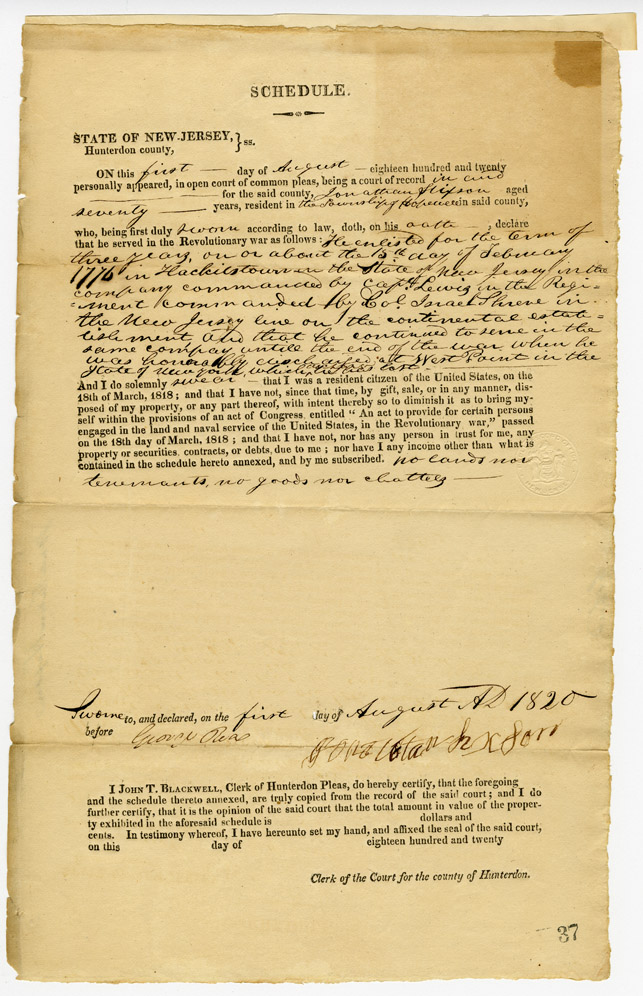 SCHEDULE.
STATE OF NEW-JERSEY, } ss.
Hunterdon county,
ON this first day of August eighteen hundred and twenty
personally appeared, in open court of common pleas, being a court of record in and
for the said county, Jonathan aged
seventy years, resident in the Township of in said county,
who, being first duly sworn according to law, doth, on his oath , declare
that he served in the Revolutionary war as follows: He enlisted for the term of
three years, on or about the 15th day of February
1776 in Hackitstown in the State of New Jersey in the
company commanded by Capt. Lewis in the Regi-
ment commanded by Col Israel Shreve in
the New Jersey line on the continental estab-
lishment, and that he continued to serve in the
same company untile the end of the war when he
was honorably discharged at West Point in the
State of New York, which
And I do solemnly swear — that I was a resident citizen of the United States, on the
18th of March, 1818 ; and that I have not, since that time, by gift, sale, or in any manner, dis-
posed of my property, or any part thereof, with intent thereby so to diminish it as to bring my-
self within the provisions of an act of Congress, entitled “ An act to provide for certain persons
engaged in the land and naval service of the United States, in the Revolutionary war,” passed
on the 18th day of March, 1818 ; and that I have not, nor has any person in trust for me, any
property or securities, contracts, or debts, due to me ; nor have I any income other than what is
contained in the schedule hereto annexed, and by me subscribed. no lands nor
tenemants, no goods nor chattels —
Sworne to, and declared, on the first day of August AD 1820
before George Rea
I JOHN T. BLACKWELL, Clerk of Hunterdon Pleas, do hereby certify, that the foregoing
and the schedule thereto annexed, are truly copied from the record of the said court ; and I do
further certify, that it is the opinion of the said court that the total amount in value of the proper-
ty exhibited in the aforesaid schedule is dollars and
cents. In testimony whereof, I have hereunto set my hand, and affixed the seal of the said court,
on this day of eighteen hundred and twenty
Clerk of the Court for the county of Hunterdon.
37